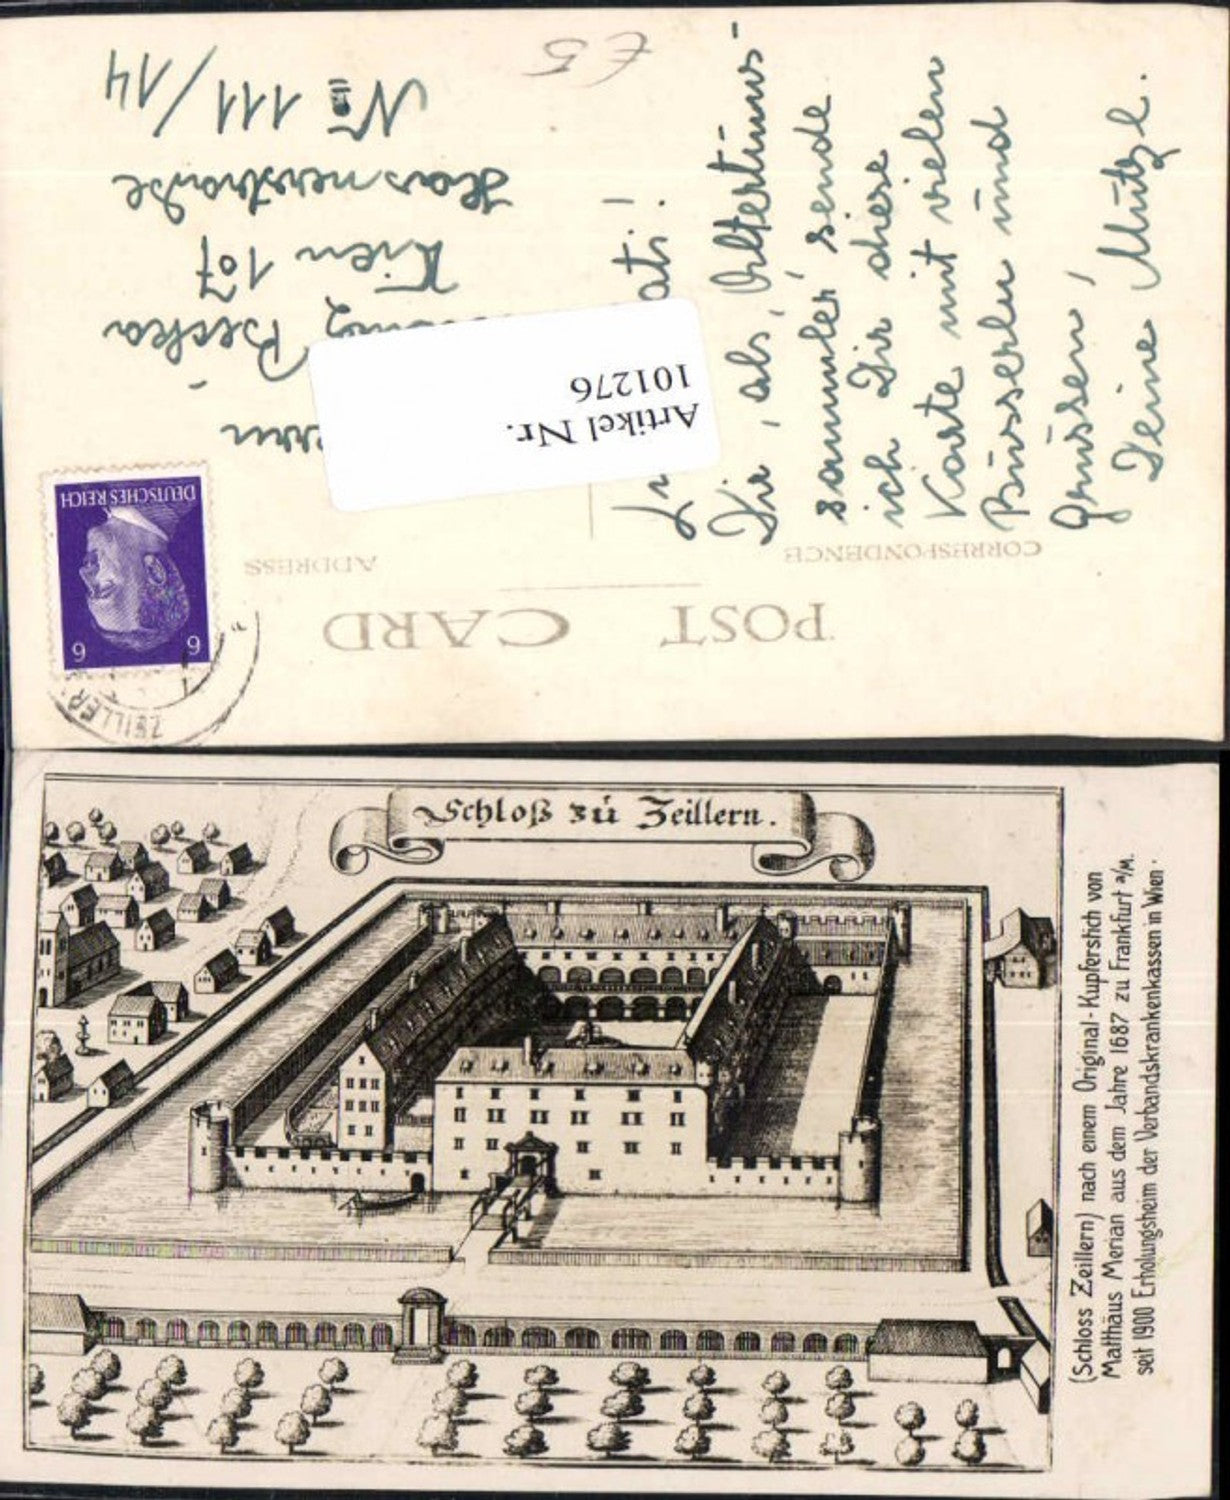 POST CARD
CORRESPONDENCE
ADDRESS
DEUTSCHES REICH
6 6
ZEILLER
Artikel Nr.
101276
Becka
Wien 107
Hasnerstraße
No 111/14
£5
Dir, als, Altertums-
sammler' sende
ich Dir diese
Karte mit vielen
Busserln und
Grüssen,
Deine Mutzl.
Schloß zu Zeillern.
(Schloss Zeillern) nach einem Original-Kupferstich von
Matthäus Merian aus dem Jahre 1687 zu Frankfurt a/M.
seit 1900 Erholungsheim der Verbandskrankenkassen in Wien.